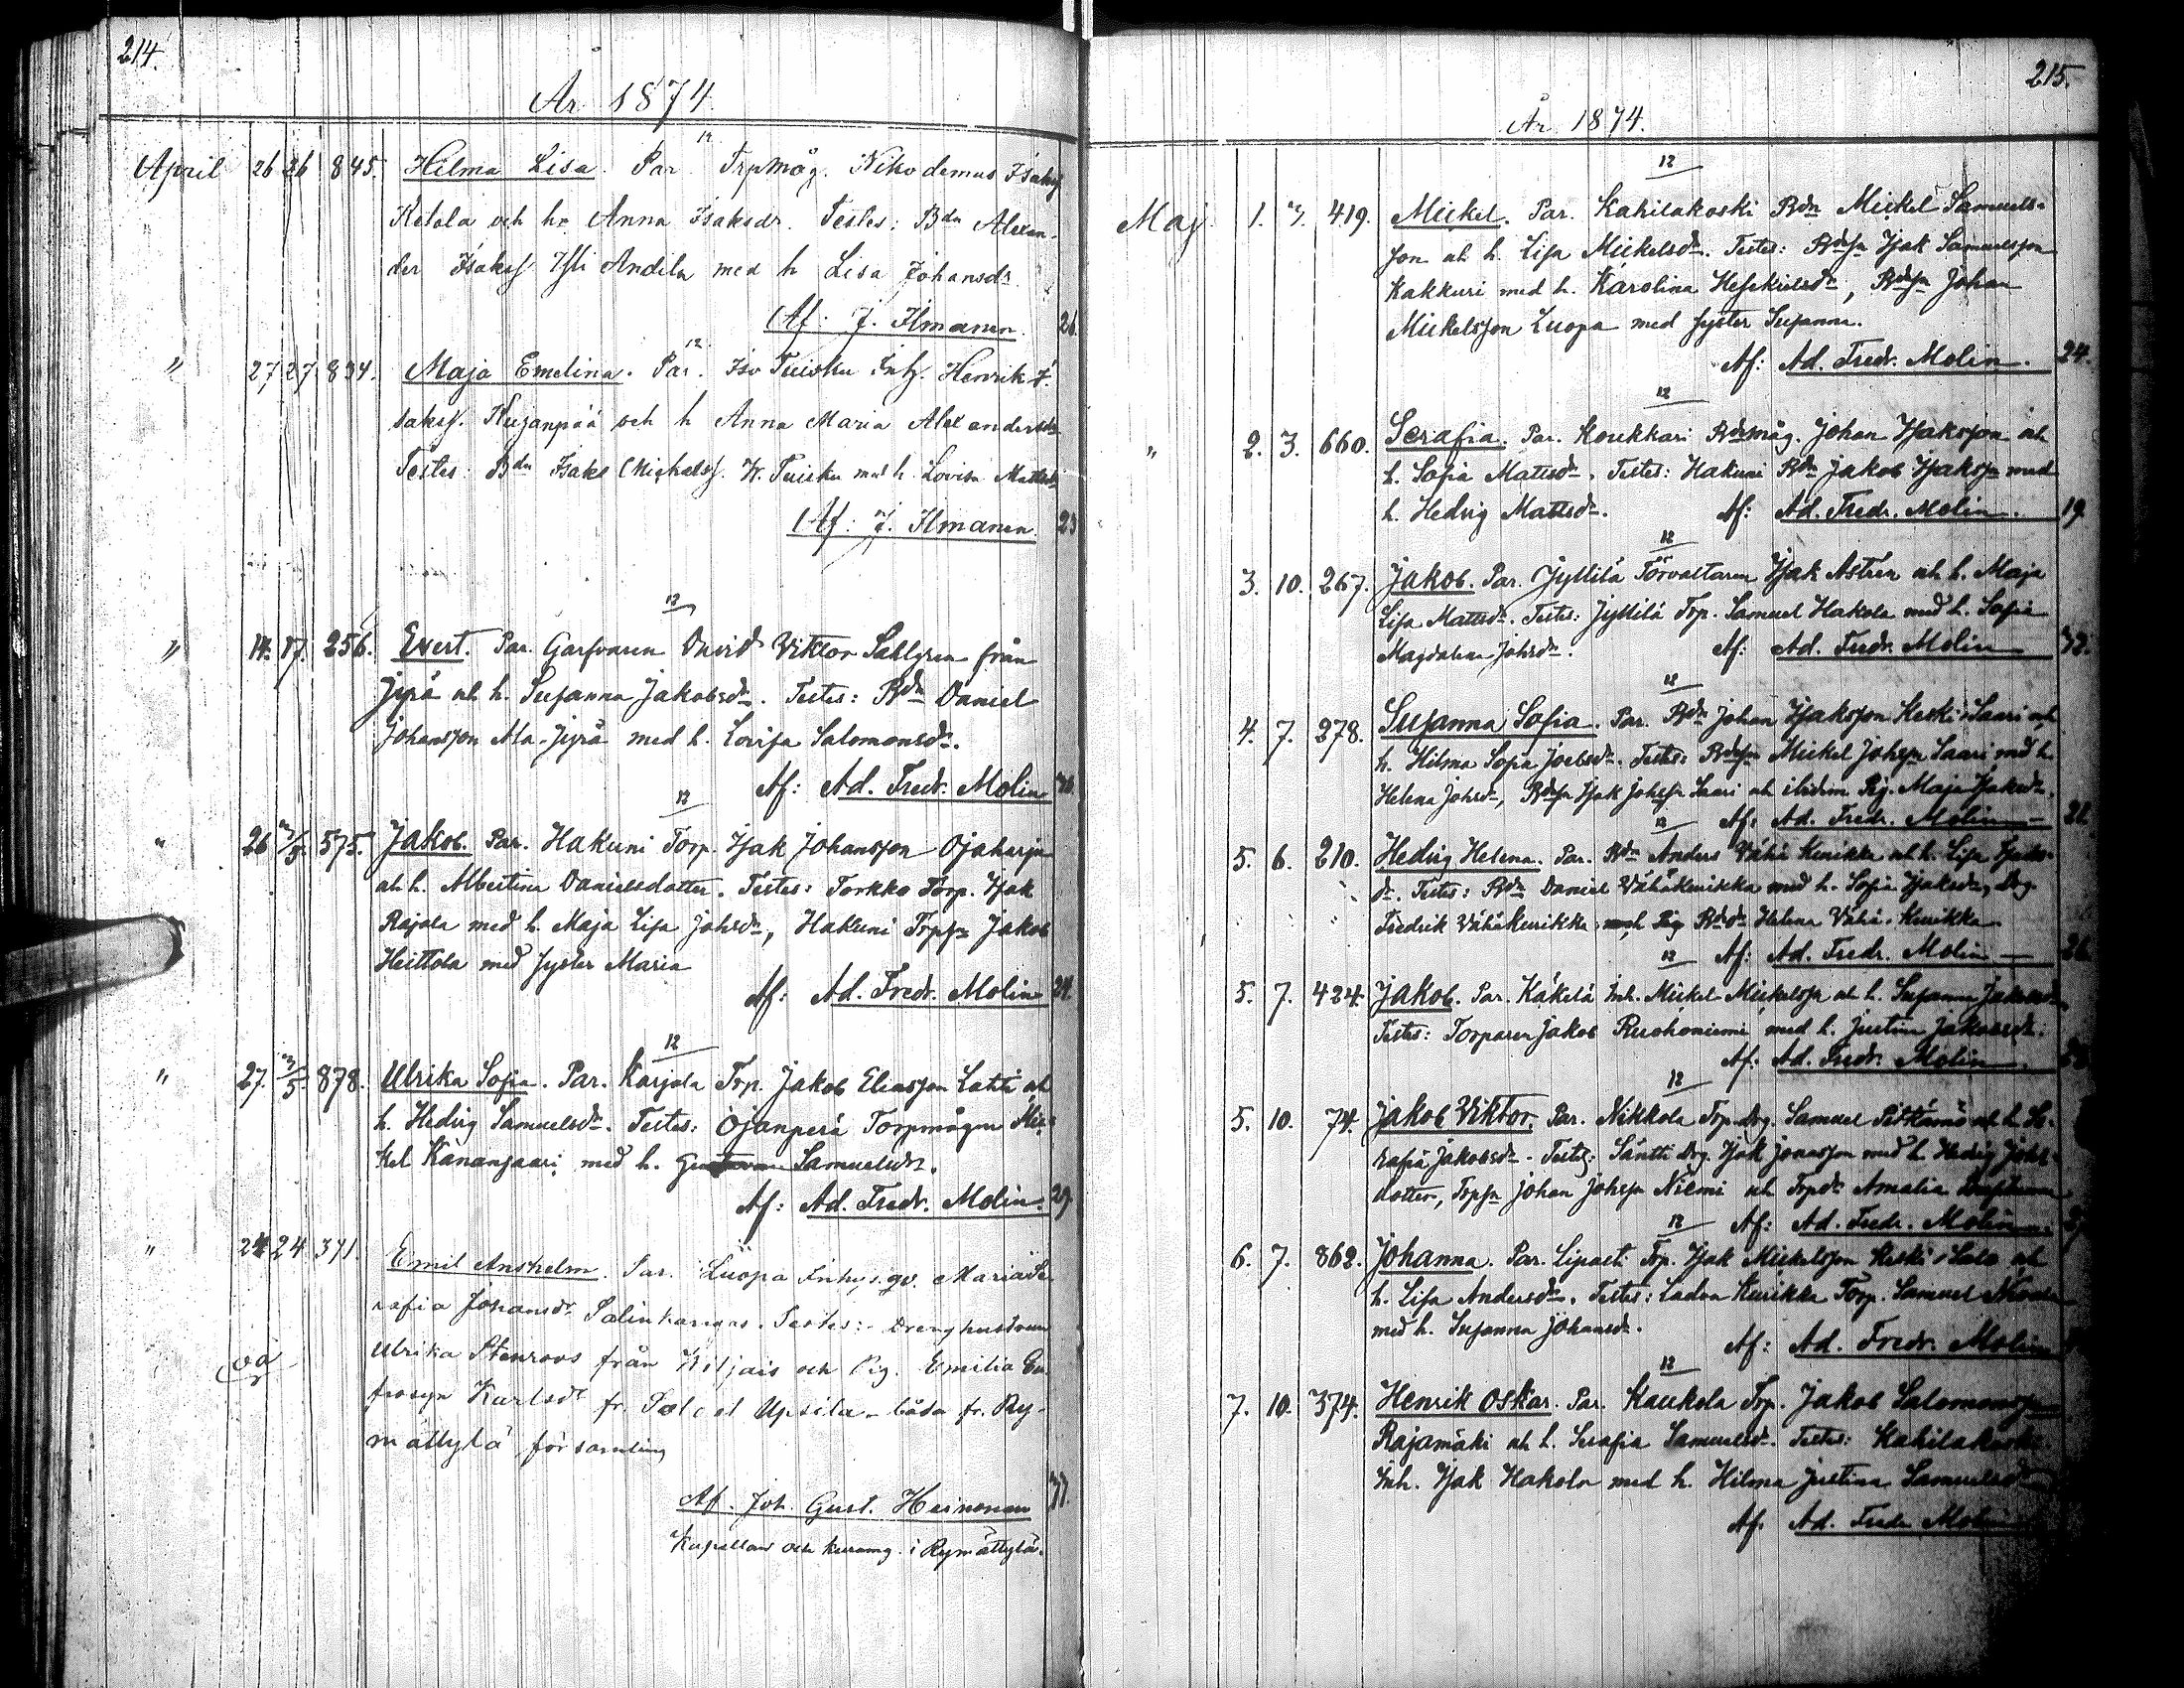 214.
År 1874.
12
April 26 26 845. Hilma Lisa. Par. Trpmåg. Nikodemus Isaksf
Ketola och h. Anna Isaksdr. Testes: Bdn Alexan-
der Isaksf Andila med h Lisa Johansdr
Af: J. Ilmanen. 26.
12
" 27 27 834. Maja Emelina. Par. Iso Tuisku Inh. Henrik I-
saksf. Kujanpää och h Anna Maria Alexandersdr
Testes: Bdn Isak Michelsf. W. Tuisku med h. Lovisa Mattsdr
Af: J. Ilmanen. 23
12
" 14. 17. 256. Evert. Par. Garfvaren David Viktor Sahlgren från
Jyrä och h. Susanna Jakobsdr. Testes: Bdn Daniel
Johansson Ala-Jyrä med h. Lovisa Salomonsdr.
Af: Ad. Fredr. Molin
12
" 26 3/5. 575. Jakob. Par. Hakuni Torp. Isak Johansson Ojaharju
och h. Albertina Danielsdotter. Testes: Torkko Torp. Isak
Rajala med h. Maja Lisa Johsdr, Hakuni Trpsn Jakob
Heittola med syster Maria
Af: Ad. Fredr. Molin 24.
12
" 27. 3/5. 878. Ulrika Sofia. Par. Karjala Trp. Jakob Eliasson Lahti och
h. Hedvig Samuelsdr. Testes: Ojanperä Torpmågen Mic-
kel Känansaari med h. Samuelsdr.
Af: Ad. Fredr. Molin. 29.
" 24 24 371. Emil Anshelm. Par. Luopa Inhys.qv. Maria Se-
rafia Johansdr Salinkangas. Testes: Drenghustrun
Ulrika Stenroos från Kiljais och Pig. Emilia Eu-
frosyn Karlsdr fr. Upsila båda fr. Ry-
mättylä församling
Af. Joh. Gust. Heinonen 37.
Kapellan och i Rymättylä.
215.
År 1874.
12
Maj 1. 3. 419. Mickel. Par. Kahilakoski Bdn Mickel Samuels-
son och h. Lisa Mickelsdr. Testes: Bdsn Isak Samuelsson
Kakkuri med h. Karolina Hesekielsdr, Bdsn Johan
Mickelsson Luopa med syster Susanna.
Af: Ad. Fredr. Molin. 24.
12
" 2. 3. 660. Serafia. Par. Koukkari Bdrmåg. Johan Isaksson och
h. Sofia Mattsdr. Testes: Hakuni Bdn Jakob Isakssn med
h. Hedvig Mattsdr. Af: Ad. Fredr. Molin. 19.
12
3. 10. 267. Jakob. Par. Jyllilä Förvaltaren Isak Astrén och h. Maja
Lisa Mattsdr. Testes: Jyllilä Trp. Samuel Hakola med h. Sofia
Magdalena Johsdr. Af: Ad. Fredr. Molin
12
4. 7. 278. Susanna Sofia. Par. Bdn Johan Isaksson Keski-Saari och
h. Hilma Sofia Joelsdr. Testes: Bdsn Mickel Johssn Saari med h.
Helena Johsdr, Bdsn Isak Johssn Saari och ibidem Pig. Maja Isaksdr.
12 Af: Ad. Fredr. Molin 21.
5. 6. 210. Hedvig Helena. Par. Bdn Anders Vähä Kurikka och h. Lisa Isaks-
dr. Testes: Bdn Daniel VähäKurikka med h. Sofia Isaksdr, Drg.
Fredrik VähäKurikka och Bdr Helena Vähä-Kurikka
12 Af: Ad. Fredr. Molin
5. 7. 424. Jakob. Par. Käkelä Inh. Mickel Mickelssn och h. Susanna Jakobsdr
Testes: Torparen Jakob Ruohoniemi med h. Justina Jakobsdr.
Af: Ad. Fredr. Molin.
12
5. 10. 74. Jakob Viktor. Par. Nikkola Trp.drg. Samuel Pitkämö och h. Se-
rafia Jakobsdr. Testes: Säntti drg. Isak Jonasson med h. Hedvig Johs-
dotter, Trpsn Johan Johssn Niemi och Trpdr Amalia
12 Af: Ad. Fredr. Molin
6. 7. 862. Johanna. Par. Lipasti Trp. Isak Mickelsson Keski-Salo och
h. Lisa Andersdr. Testes: Ladon Kurikka Torp. Samuel
med h. Susanna Johansdr.
Af: Ad. Fredr. Molin
12
7. 10. 374. Henrik Oskar. Par. Kaukola Trp. Jakob Salomonssn
Rajamäki och h. Serafia Samuelsdr. Testes: Kahilakoski
Inh. Isak Hakola med h. Hilma Justina Samuelsdr
Af. Ad. Fredr Molin